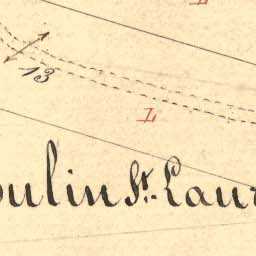 L
13
L
oulin St. Laur